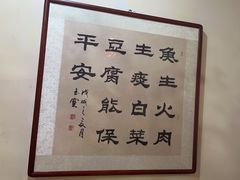 魚生火肉
生痰白菜
豆腐能保
平安